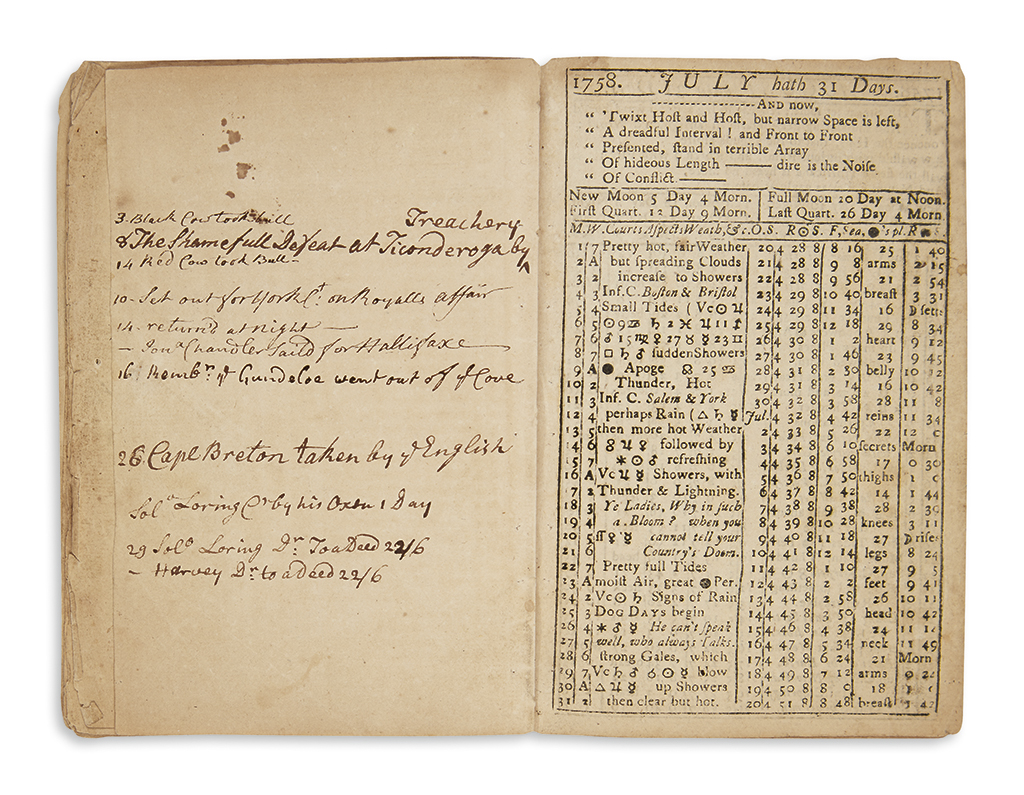 3. Black Cow took bull
Treachery
8 The Shamefull Defeat at Ticonderoga by ^
14 Red Cow took Bull-
10- Set out for York Ct. on Royalls affair
14- return'd at night —
— Jona Chandler Saild for Hallifaxe
16 Rembr. ye Gundeloe went out of ye Cove
26 Cape Breton taken by ye English
Solo Loring Cr by his Oxen 1 Day
29 Solo Loring Dr To a Deed 22/6
— Harvey Dr to a Deed 22/6
1758. JULY hath 31 Days.
---------------And now,
“ 'Twixt Hoſt and Hoſt, but narrow Space is left,
“ A dreadful Interval ! and Front to Front
“ Preſented, ſtand in terrible Array
“ Of hideous Length —— dire is the Noiſe
“ Of Conflict. ——
New Moon 5 Day 4 Morn. Full Moon 20 Day at Noon.
Firſt Quart. 12 Day 9 Morn. Laſt Quart. 26 Day 4 Morn
M.W. Courts Aſpects Weath, &c. O.S. R☉S. F,Sea, ●'s pl. R●S.
1 7 Pretty hot, fair Weather 20 4 28 8 8 16 25 1 40
2 A but ſpreading Clouds 21 4 28 8 9 8 arms 2 15
3 2 increaſe to Showers 22 4 28 8 9 56 21 2 54
4 3 Inf. C. Boſton & Briſtol 23 4 29 8 10 40 breaſt 3 31
5 4 Small Tides ( Vc ☉ ♃ 24 4 29 8 11 34 16 ☽ ſets
6 5 ☉ 9 ♋ ♄ 2 ♓ ♃ 11 ♐ 25 4 29 8 12 18 29 8 34
7 6 ♂ 15 ♍ ♀ 17 ♉ ☿ 23 ♊ 26 4 30 8 1 2 heart 9 12
8 7 □ ♄ ♂ ſudden Showers 27 4 30 8 1 46 23 9 45
9 A ● Apoge ☊ 25 ♋ 28 4 31 8 2 30 belly 10 12
10 2 Thunder, Hot 29 4 31 8 3 14 16 10 42
11 3 Inf. C. Salem & York 30 4 32 8 3 58 28 11 8
12 4 perhaps Rain ( △ ♄ ☿ Jul. 4 32 8 4 42 reins 11 34
13 5 then more hot Weather 2 4 33 8 5 26 22 12 0
14 6 ☍ ♃ ♀ followed by 3 4 34 8 6 10 ſecrets Morn
15 7 ✶ ☉ ♂ refreſhing 4 4 35 8 6 58 17 0 30
16 A Vc ♃ ☿ Showers, with 5 4 36 8 7 50 thighs 1 0
17 2 Thunder & Lightning. 6 4 37 8 8 42 14 1 44
18 3 Ye Ladies, Why in ſuch 7 4 38 8 9 38 28 2 30
19 4 a Bloom ? when you 8 4 39 8 10 28 knees 3 11
20 5 ſſ ♀ ☿ cannot tell your 9 4 40 8 11 18 27 ☽ riſes
21 6 Country's Doom. 10 4 41 8 12 14 legs 8 24
22 7 Pretty full Tides 11 4 42 8 1 10 27 9 5
23 A moiſt Air, great ● Per. 12 4 43 8 2 2 feet 9 41
24 2 Vc ☉ ♄ Signs of Rain 13 4 44 8 2 58 26 10 11
25 3 DOG DAYS begin 14 4 45 8 3 50 head 10 42
26 4 ✶ ♂ ☿ He can't ſpeak 15 4 46 8 4 38 24 11 12
27 5 well, who always Talks. 16 4 47 8 5 34 neck 11 49
28 6 ſtrong Gales, which 17 4 48 8 6 24 21 Morn
29 7 Vc ♄ ♂ ☌ ☉ ☿ blow 18 4 49 8 7 12 arms 0 24
30 A △ ♃ ☿ up Showers 19 4 50 8 8 0 18 1 0
31 2 then clear but hot. 20 4 51 8 8 48 breaſt 1 42